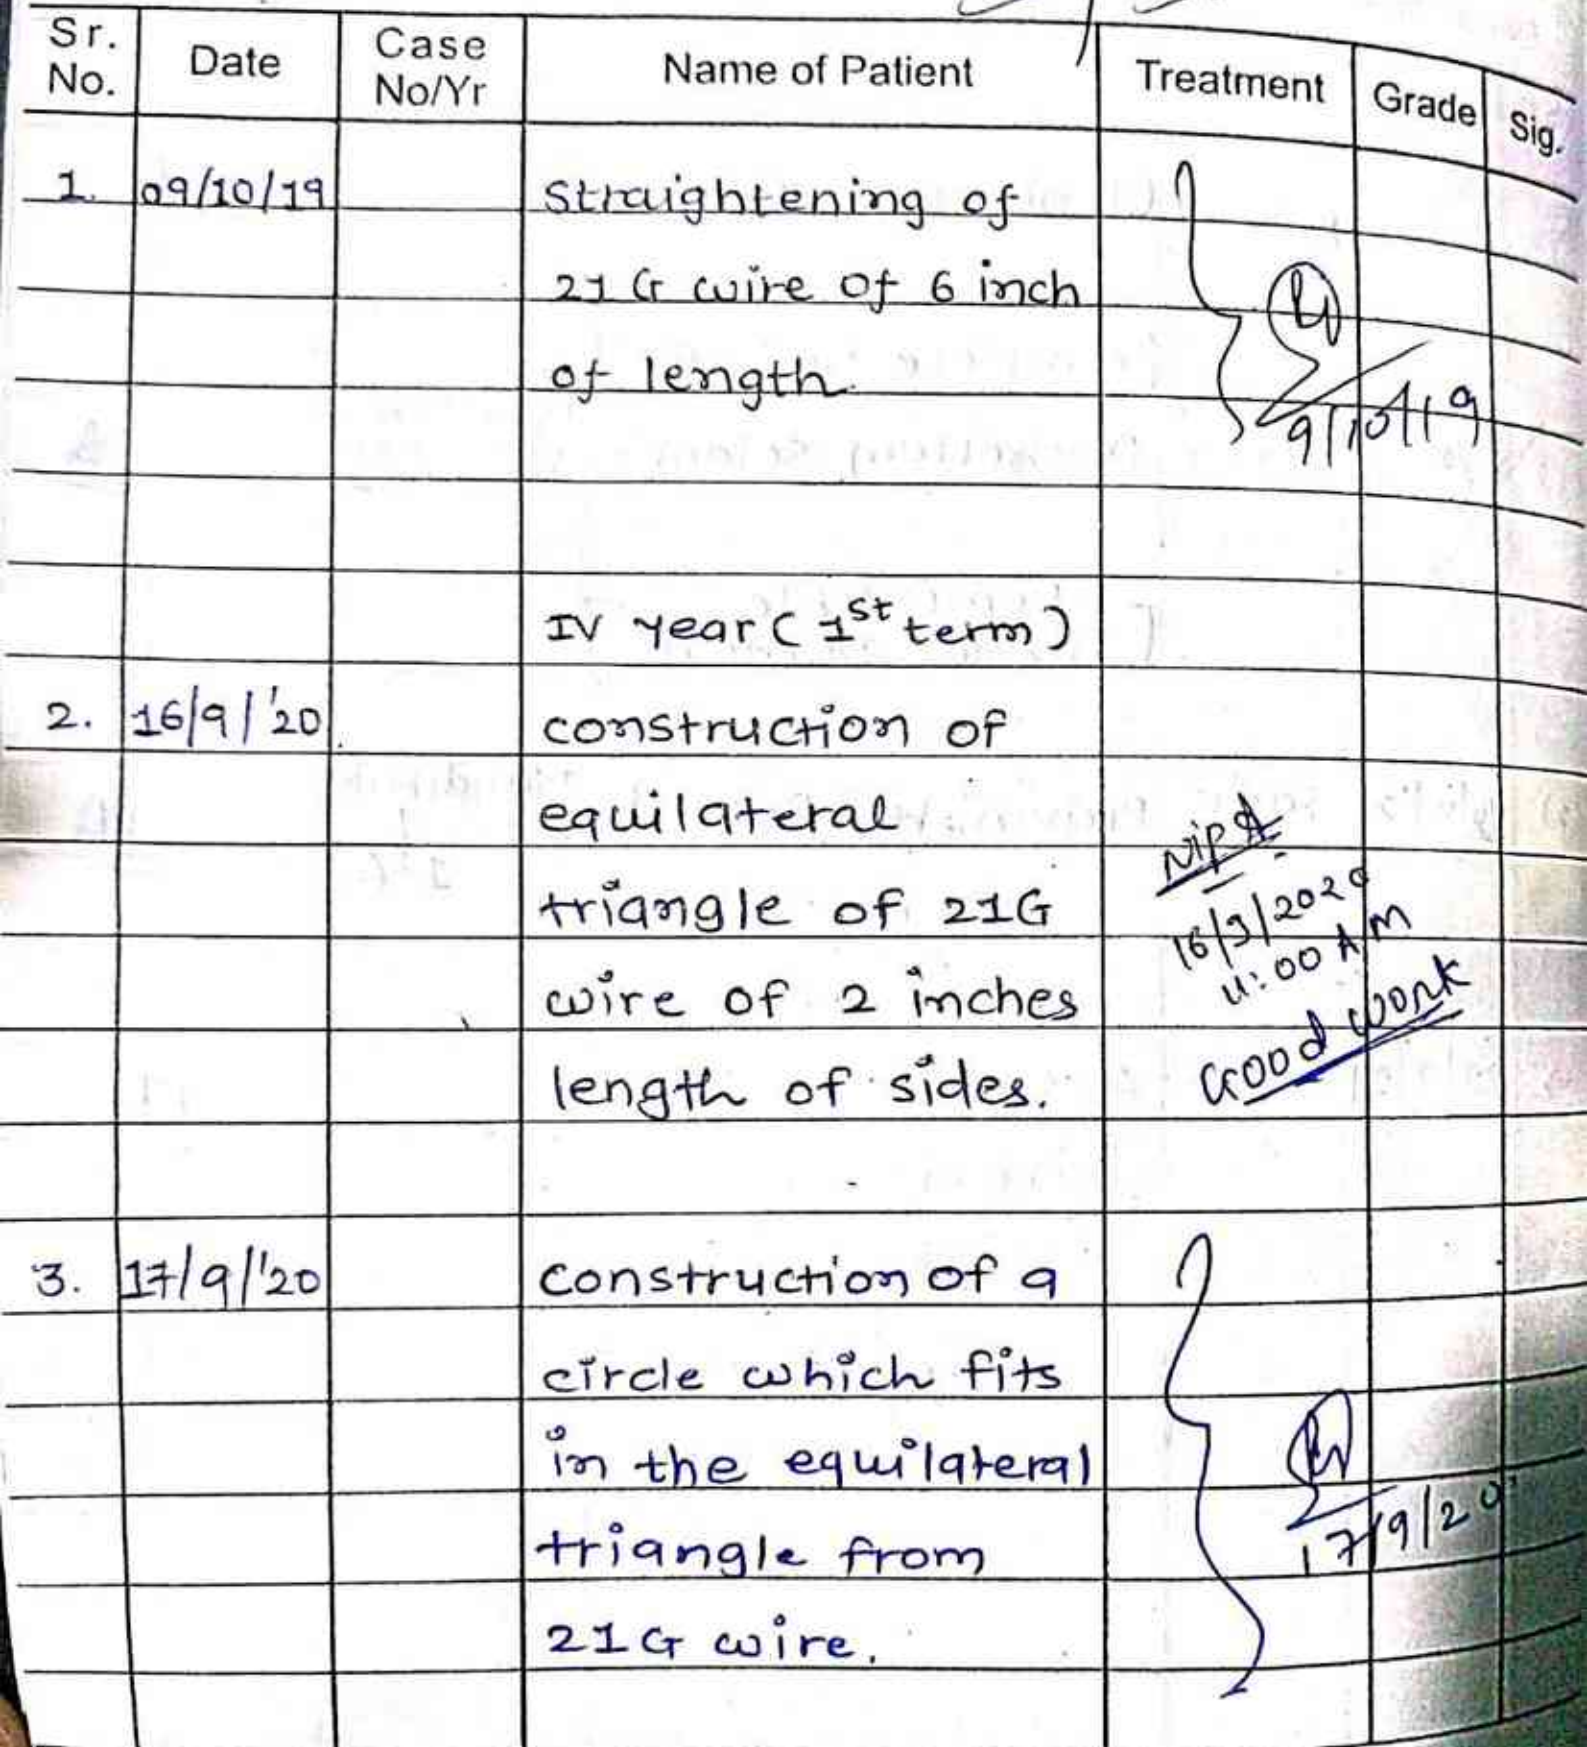 Sr. No. Date Case No/Yr Name of Patient Treatment Grade Sig.
1. 09/10/19 Straightening of
21 G wire of 6 inch
of length.
9/10/19
IV year ( 1st term )
2. 16/9/'20. construction of
equilateral
triangle of 21G
16/9/2020
wire of 2 inches
11:00 AM
Good work
length of sides.
3. 17/9/'20 construction of a
circle which fits
in the equilateral
triangle from
17/9/20
21G wire.